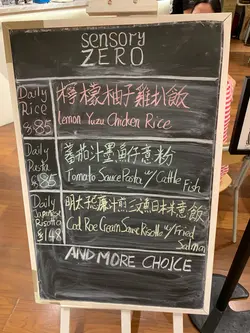 sensory
ZERO
Daily
Rice
$85
檸檬柚子雞扒飯
Lemon Yuzu Chicken Rice
Daily
Pasta
$85
蕃茄汁墨魚仔意粉
Tomato Sauce Pasta w/ Cattle Fish
Daily
Japanese
Risotto
$148
明太子忌廉汁煎三文魚日本米意飯
Cod Roe Cream Sauce Risotto w/ Fried
Salmon
AND MORE CHOICE